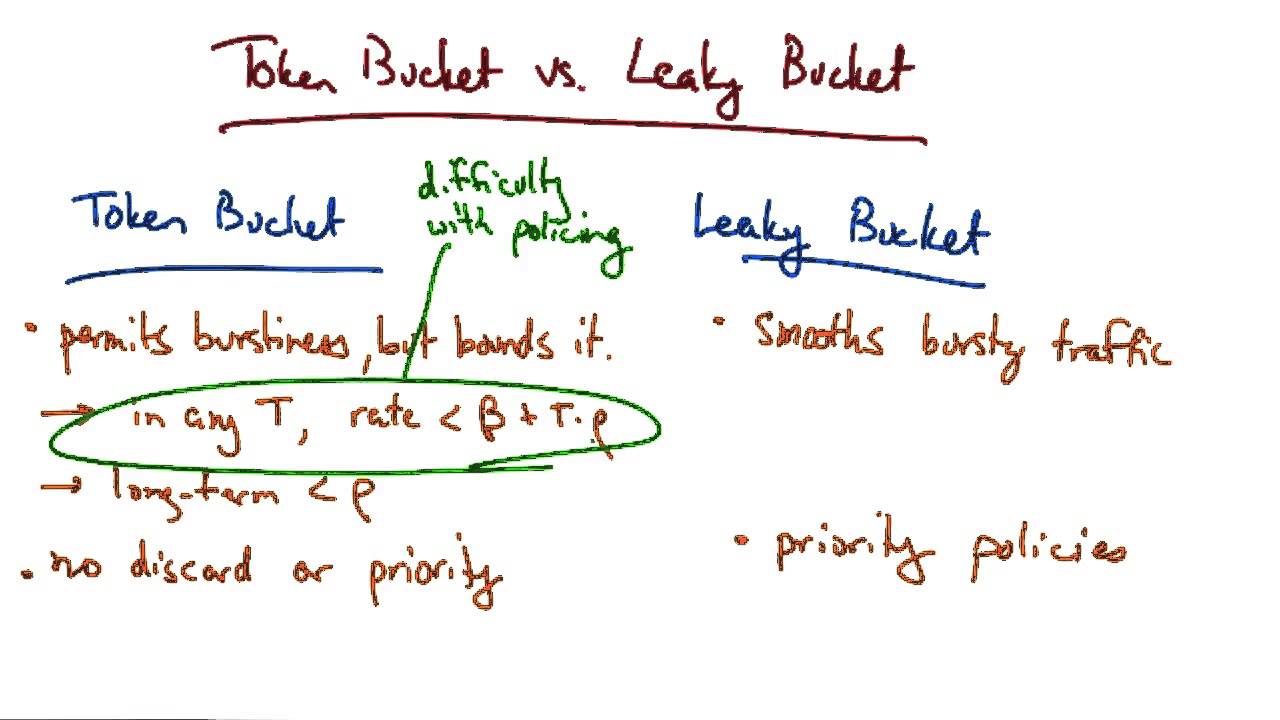 Token Bucket vs. Leaky Bucket
difficulty
with policing
Token Bucket
• permits burstiness, but bounds it.
→ in any T, rate < β + T·ρ
→ long-term < ρ
• no discard or priority
Leaky Bucket
• smooths bursty traffic
• priority policies